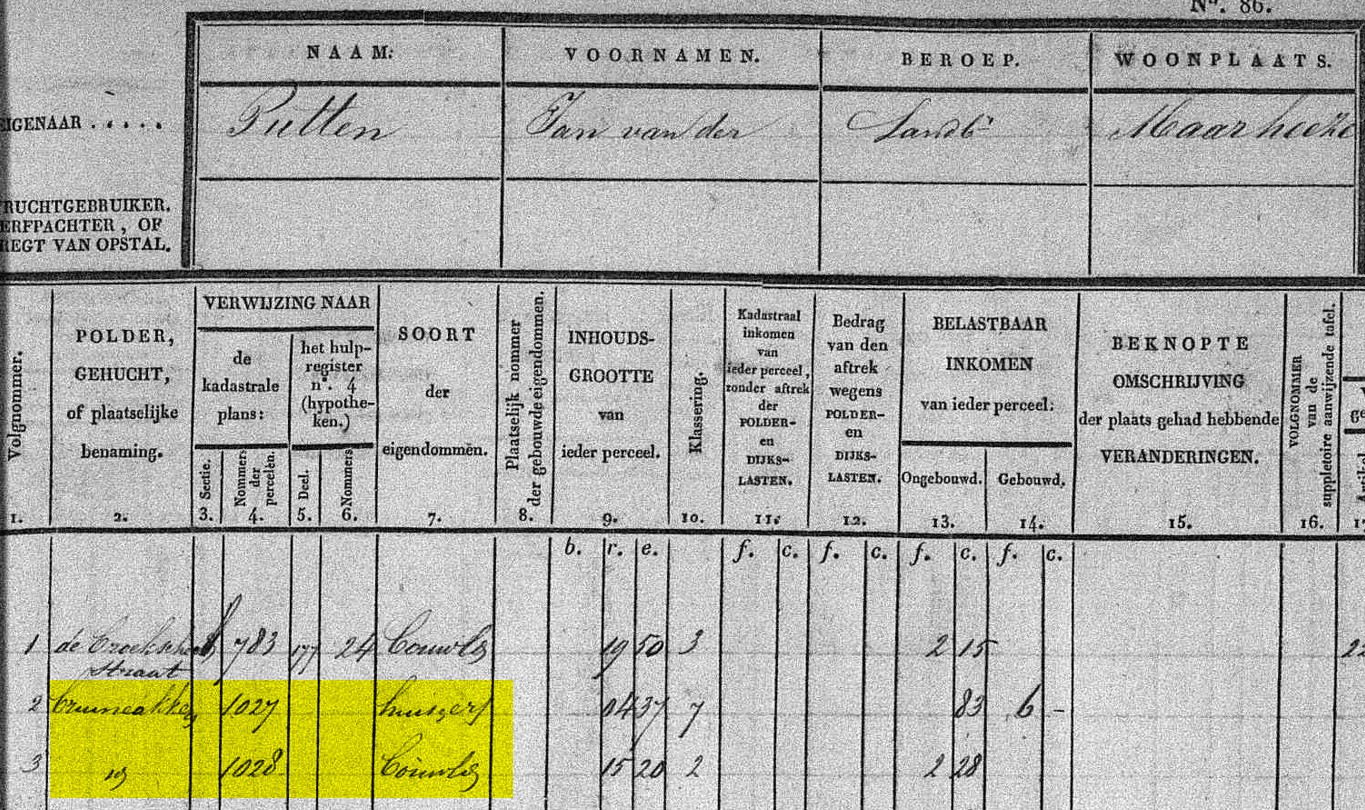 No. 86.
NAAM: VOORNAMEN. BEROEP. WOONPLAATS.
EIGENAAR . . . . . Putten Jan van der Landbr Maarheeze
RUCHTGEBRUIKER.
ERFPACHTER, OF
REGT VAN OPSTAL.
Volgnommer.
1.
POLDER,
GEHUCHT,
of plaatselijke
benaming.
2.
VERWIJZING NAAR
de
kadastrale
plans:
Sectie.
3.
Nommers
der
percelen.
4.
het hulp-
register
n°. 4
(hypothe-
ken.)
Deel.
5.
Nommers
6.
SOORT
der
eigendommen.
7.
Plaatselijk nommer
der gebouwde eigendommen.
8.
INHOUDS-
GROOTTE
van
ieder perceel.
9.
Klassering.
10.
Kadastraal
inkomen
van
ieder perceel,
zonder aftrek
der
POLDER-
en
DIJKS-
LASTEN.
11.
Bedrag
van den
aftrek
wegens
POLDER-
en
DIJKS-
LASTEN.
12.
BELASTBAAR
INKOMEN
van ieder perceel:
Ongebouwd.
13.
Gebouwd.
14.
BEKNOPTE
OMSCHRIJVING
der plaats gehad hebbende
VERANDERINGEN.
15.
VOLGNOMMER
van de
suppletoire aanwijzende tafel.
16.
b. r. e. f. c. f. c. f. c. f. c.
1 de 783 177 24 Bouwld 19 50 3 2 15
straat
2 1027 huis, erf 04 37 7 83 6 -
3 id 1028 Bouwld 15 20 2 2 28